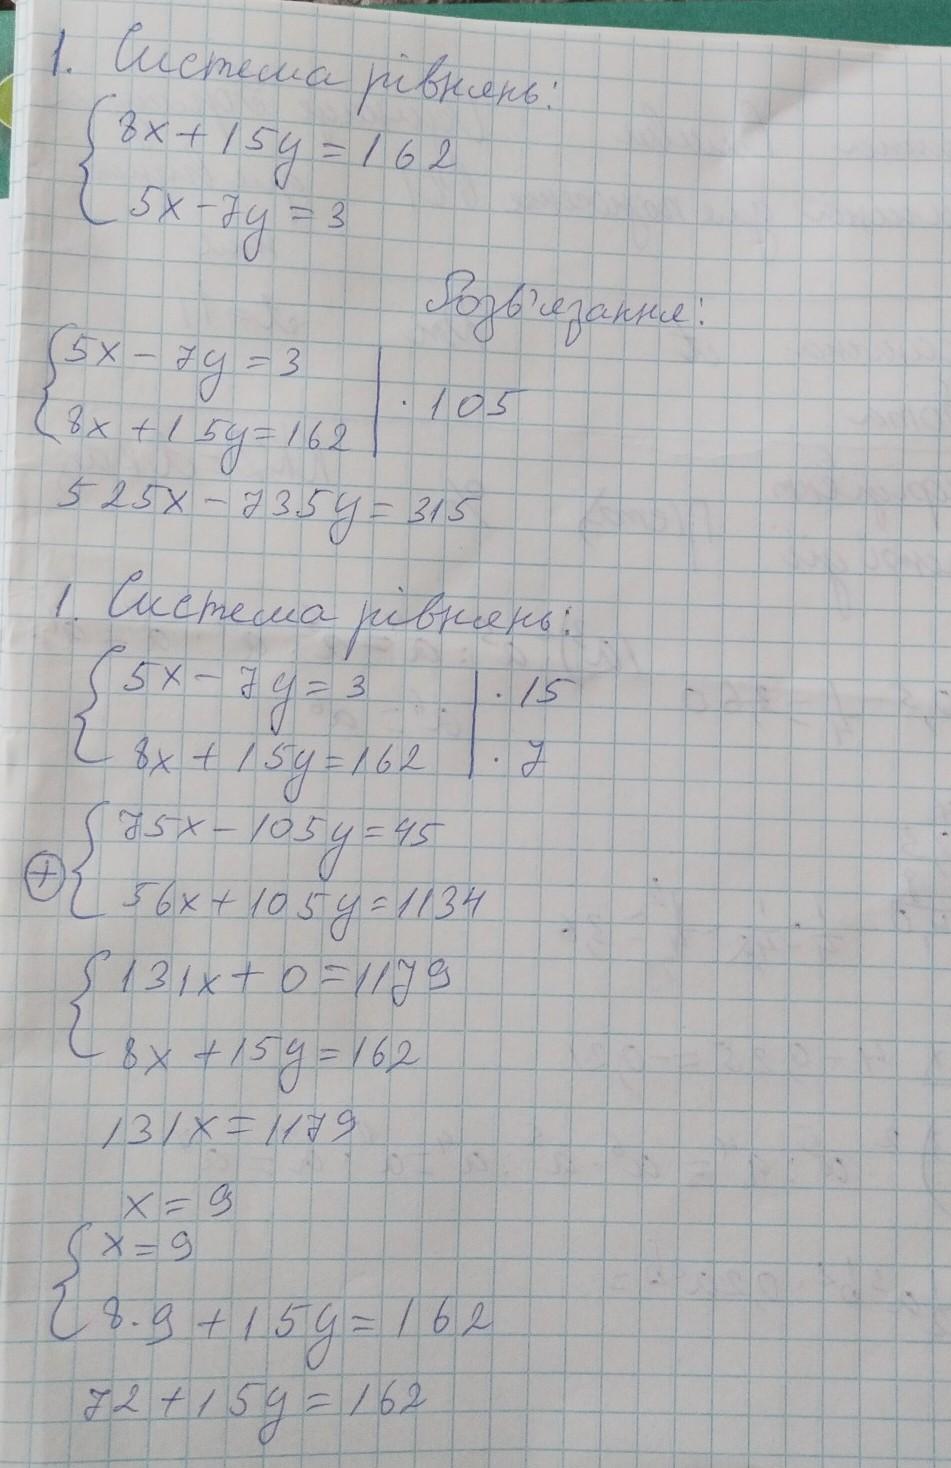 1. Система рівнянь:
8x + 15y = 162
5x - 7y = 3
Розв'язання:
5x - 7y = 3
· 105
8x + 15y = 162
525x - 735y = 315
1. Система рівнянь:
5x - 7y = 3 | · 15
8x + 15y = 162 | · 7
75x - 105y = 45
+
56x + 105y = 1134
131x + 0 = 1179
8x + 15y = 162
131x = 1179
x = 9
x = 9
8·9 + 15y = 162
72 + 15y = 162